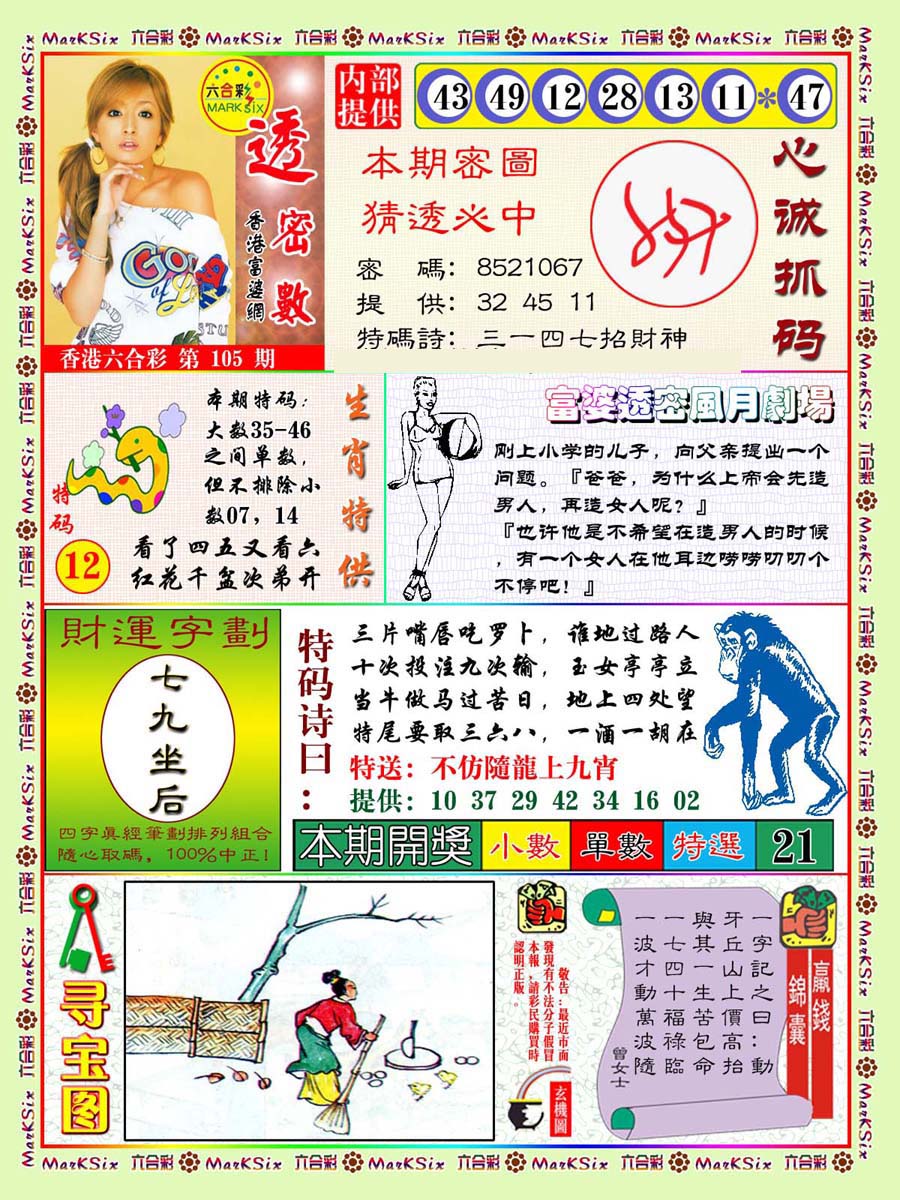 MarKSix 六合彩 MarKSix 六合彩 MarKSix 六合彩 MarKSix 六合彩 MarKSix 六合彩
六合彩
MARK SIX
透密數
香港富婆網
香港六合彩 第 105 期
内部
提供
43 49 12 28 13 11 * 47
本期密圖
猜透必中
密 碼: 8521067
提 供: 32 45 11
特碼詩: 三一四七招財神
心诚抓码
特码
12
本期特码:
大数35-46
之间单数,
但不排除小
数07, 14
看了四五又看六
红花千盆次弟开
生肖特供
富婆透密風月劇場
刚上小学的儿子, 向父亲提出一个
问题。『爸爸, 为什么上帝会先造
男人, 再造女人呢? 』
『也许他是不希望在造男人的时候
, 有一个女人在他耳边唠唠叨叨个
不停吧! 』
財運字劃
七九坐后
四字真經筆劃排列組合
隨心取碼, 100%中正!
特码诗曰:
三片嘴唇吃罗卜, 谁地过路人
十次投注九次输, 玉女亭亭立
当牛做马过苦日, 地上四处望
特尾要取三六八, 一酒一胡在
特送: 不仿隨龍上九宵
提供: 10 37 29 42 34 16 02
本期開獎 小數 單數 特選 21
寻宝图
敬告:最近市面
發現有不法分子假冒
本報,請彩民購買時
認明正版。
玄機圖
一字記之曰:動
牙丘山上價高抬
與其一生苦包命
一七四十福祿臨
一波才動萬波隨
曾女士
贏錢
錦囊
MarKSix 六合彩 MarKSix 六合彩 MarKSix 六合彩 MarKSix 六合彩 MarKSix 六合彩